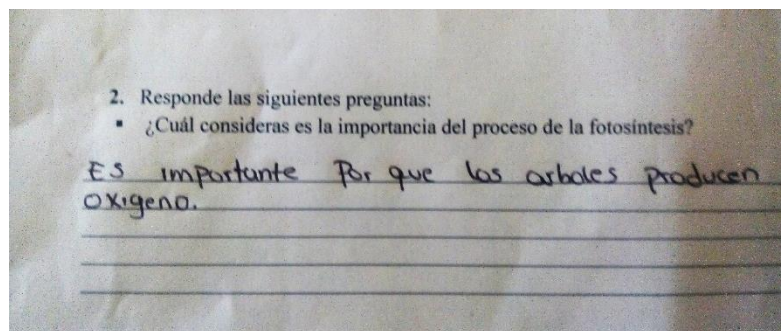 2. Responde las siguientes preguntas:
▪ ¿Cuál consideras es la importancia del proceso de la fotosíntesis?
Es importante Por que los arboles producen
oxigeno.